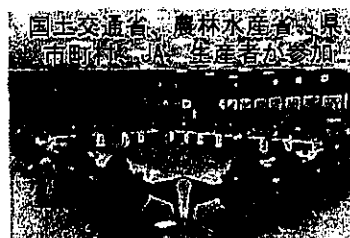 国土交通省、農林水産省、県
市町村、JA、生産者が参加